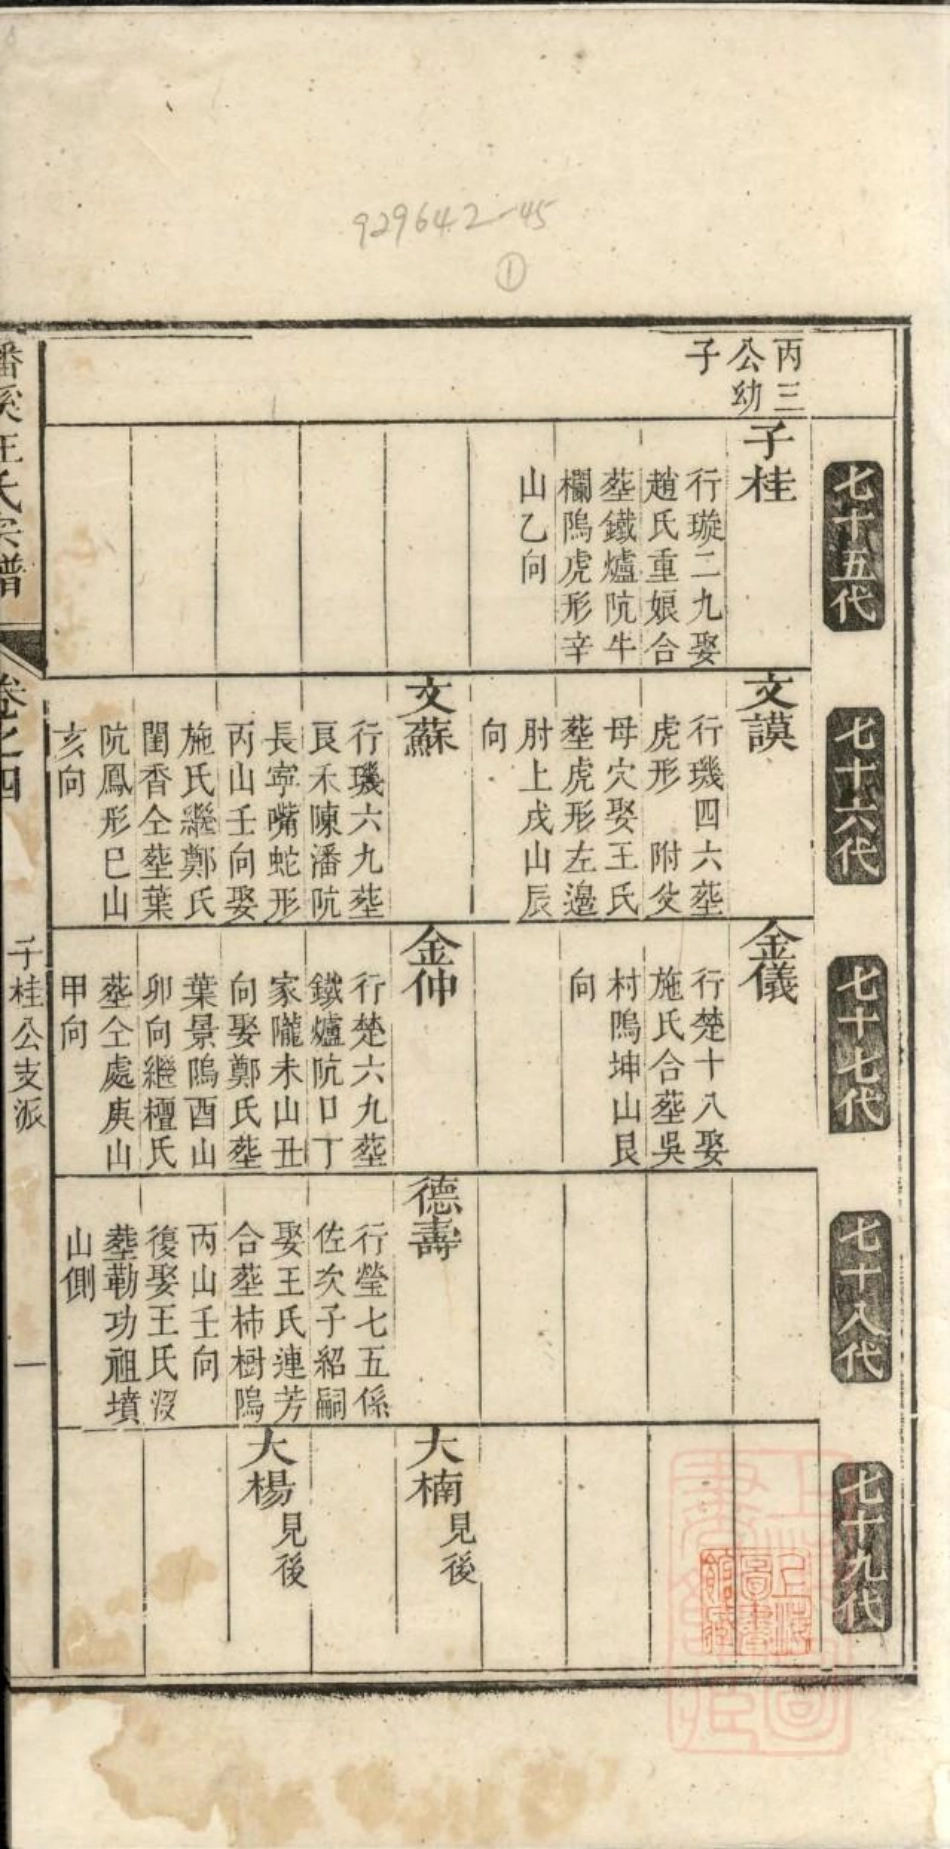 929642-45
①
七十五代
七十六代
七十七代
七十八代
七十九代
丙三
公幼
子
子桂
行璇二九娶
趙氏重娘合
塟鐵爐阬牛
欄隖虎形辛
山乙向
文謨
行璣四六塟
虎形 附父
母穴娶王氏
塟虎形左邉
肘上戌山辰
向
文蘇
行璣六九塟
艮禾陳潘阬
長寧嘴蛇形
丙山壬向娶
施氏繼鄭氏
閨香仝塟葉
阬鳳形巳山
亥向
金儀
行楚十八娶
施氏合塟吳
村隖坤山艮
向
金仲
行楚六九塟
鐵爐阬口丁
家隴未山丑
向娶鄭氏塟
葉景隖酉山
卯向繼檀氏
塟仝處庚山
甲向
德壽
行瑩七五係
佐次子紹嗣
娶王氏連芳
合塟柿樹隖
丙山壬向
復娶王氏沒
塟勒功祖墳
山側
大楠
見後
大楊
見後
王氏宗譜
卷之四
子桂公支派
一
上海圖書館藏